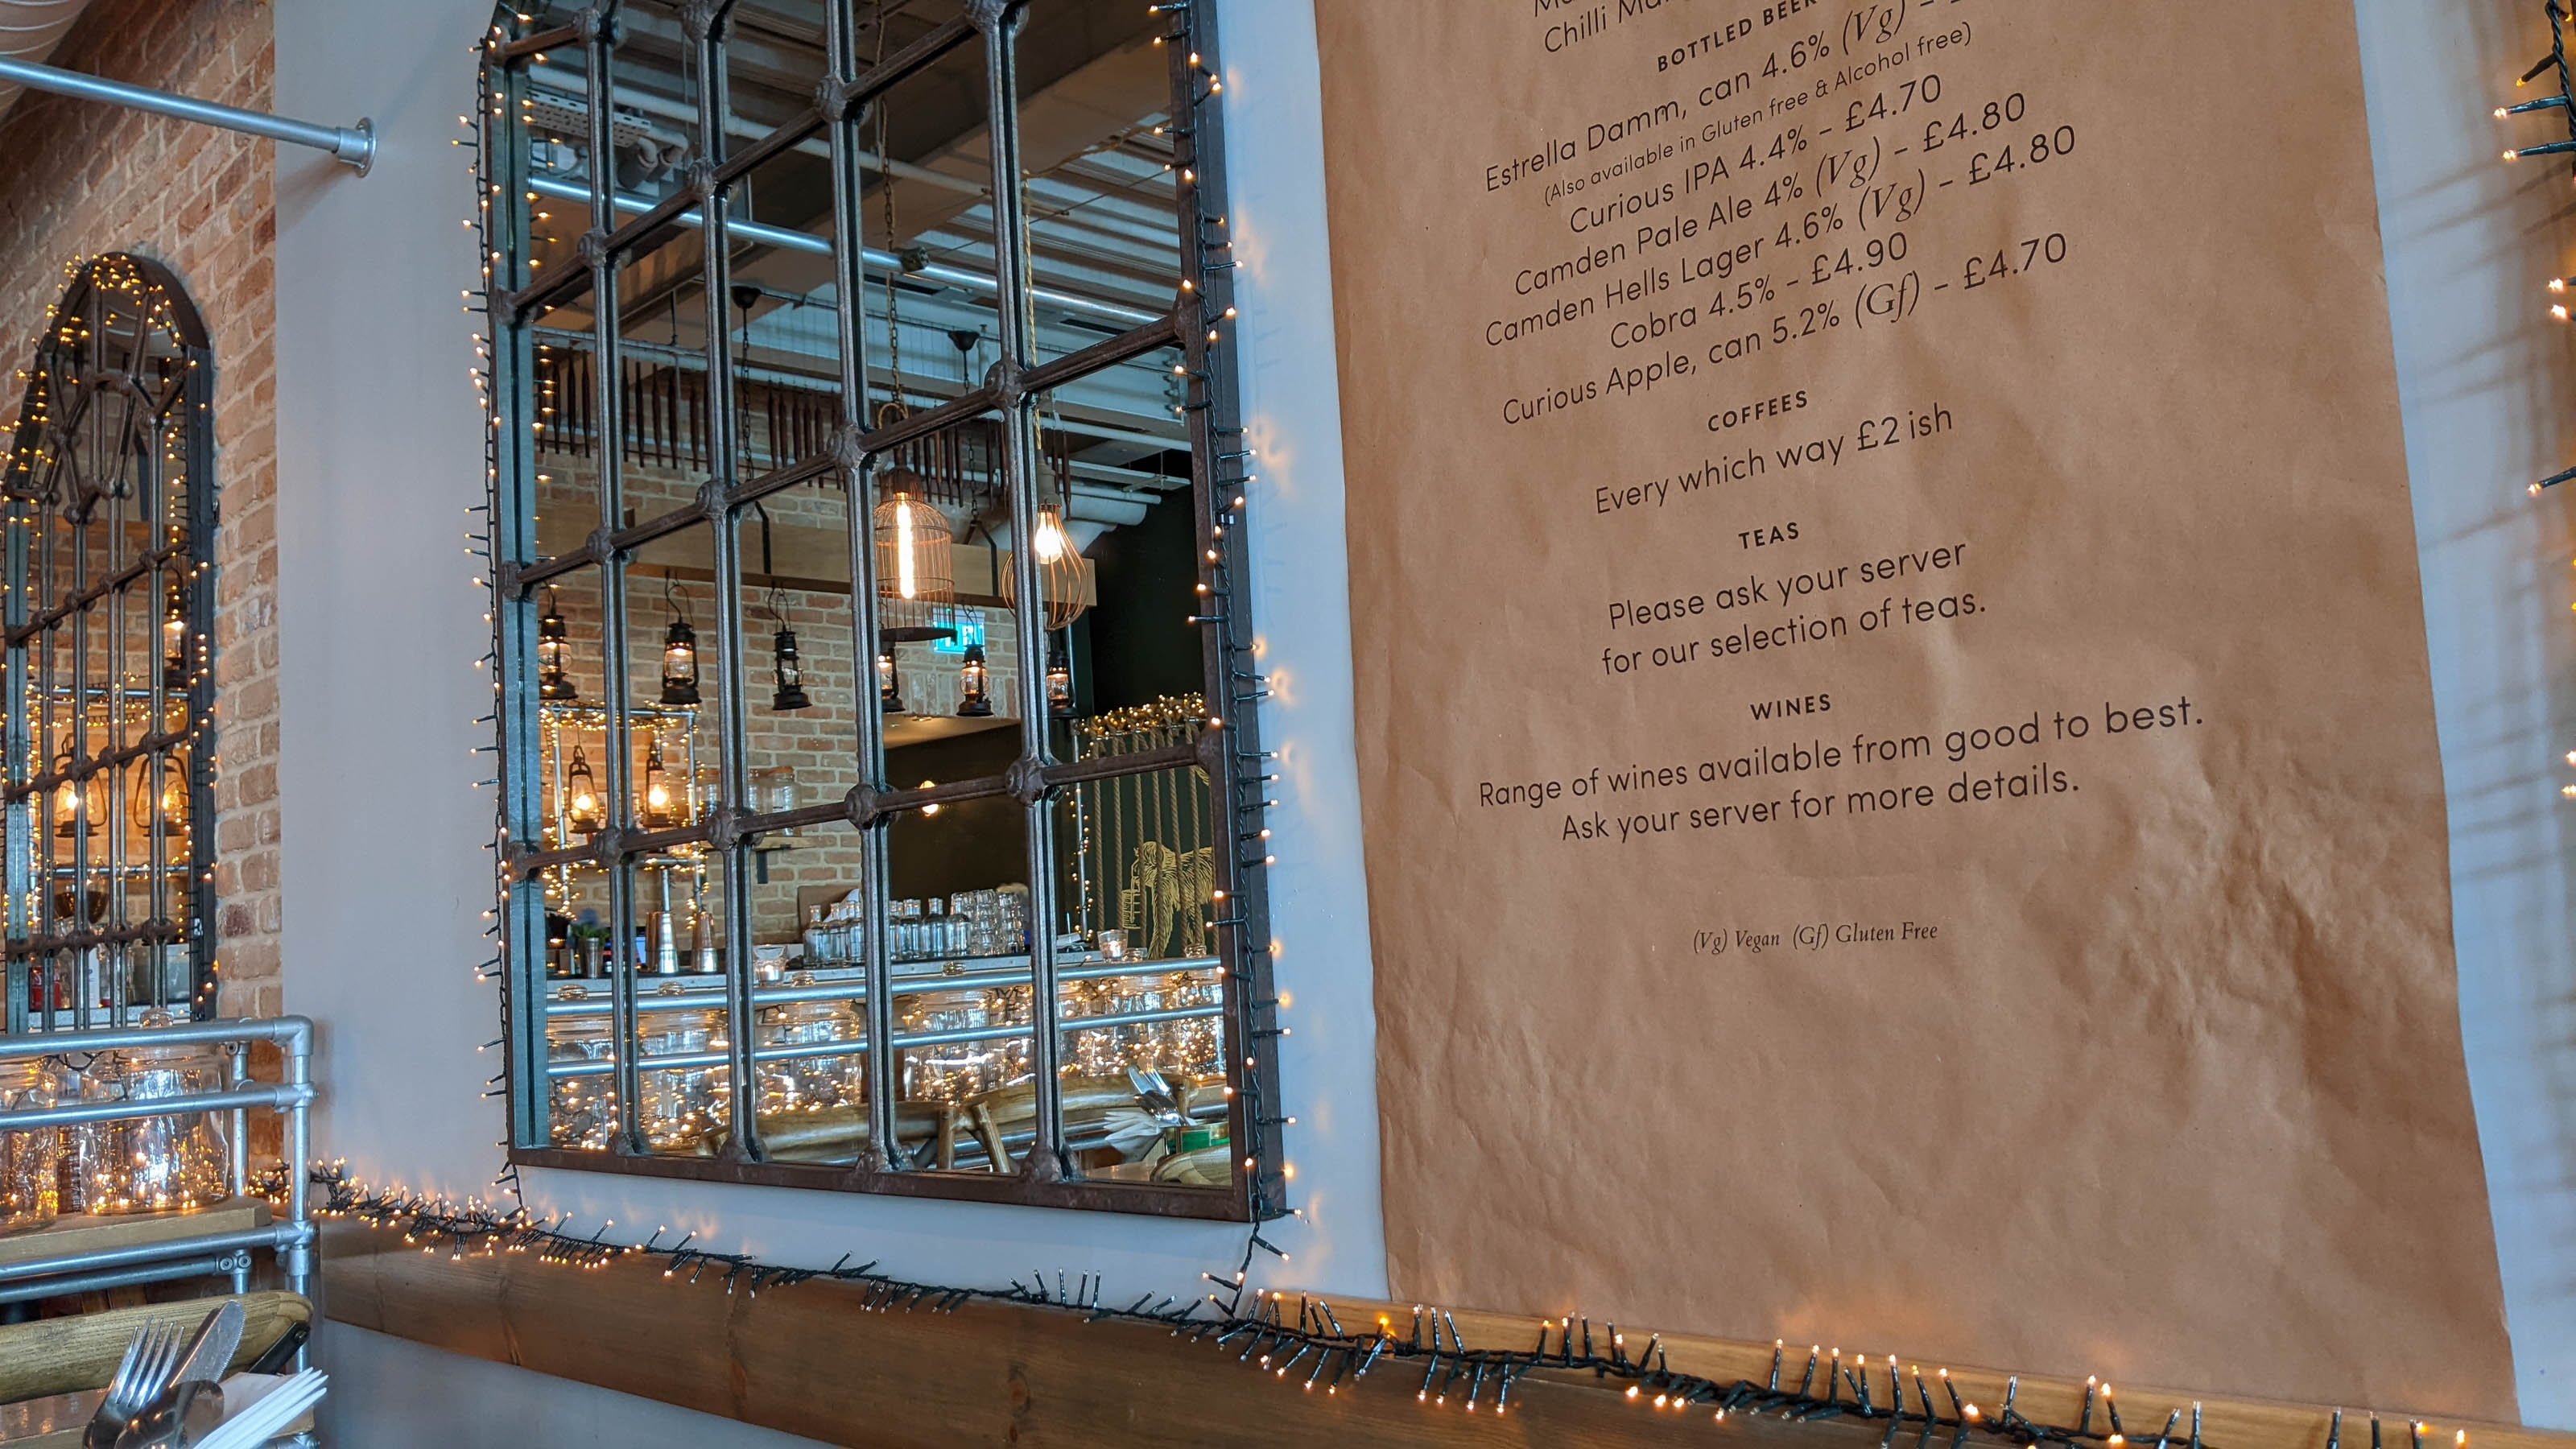 Chilli
BOTTLED BEER
Estrella Damm, can 4.6% (Vg) -
(Also available in Gluten free & Alcohol free)
Curious IPA 4.4% - £4.70
Camden Pale Ale 4% (Vg) - £4.80
Camden Hells Lager 4.6% (Vg) - £4.80
Cobra 4.5% - £4.90
Curious Apple, can 5.2% (Gf) - £4.70
COFFEES
Every which way £2 ish
TEAS
Please ask your server
for our selection of teas.
WINES
Range of wines available from good to best.
Ask your server for more details.
(Vg) Vegan (Gf) Gluten Free